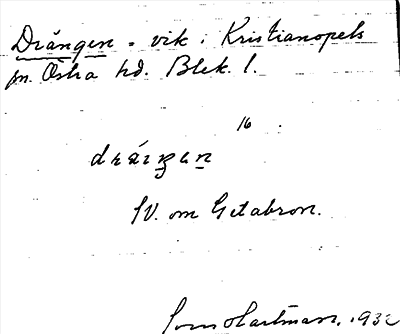 Drängen . vik i Kristianopels
sn. Östra hd. Blek. l.
16
drángen
SV. om Getabron.
Hartman. 1932